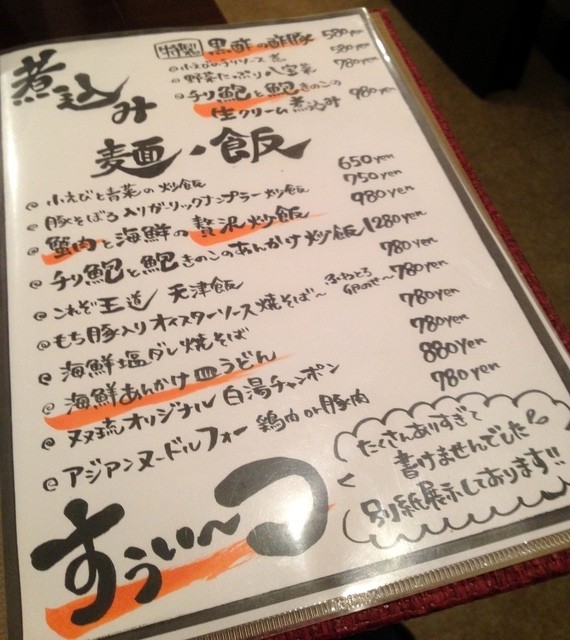 煮込み
特製 黒酢の酢豚 580yen
@小えびのチリソース煮 580yen
@野菜たっぷり八宝菜 780yen
@チリ鮑と鮑きのこの
生クリーム煮込み 980yen
麺・飯
@小えびと青菜の炒飯 650yen
@豚そぼろ入りガーリックナンプラー炒飯 750yen
@蟹肉と海鮮の贅沢炒飯 980yen
@チリ鮑と鮑きのこのあんかけ炒飯 1280yen
@これぞ王道 天津飯 780yen
@もち豚入りオイスターソース焼そば〜 780yen
@海鮮塩ダレ焼そば 780yen
@海鮮あんかけ皿うどん 780yen
@ヌヌ琉オリジナル 白湯チャンポン 880yen
@アジアンヌードルフォー 鶏肉or豚肉 780yen
たくさんありすぎて
書けませんでした
別紙展示しております!!
すうい〜つ